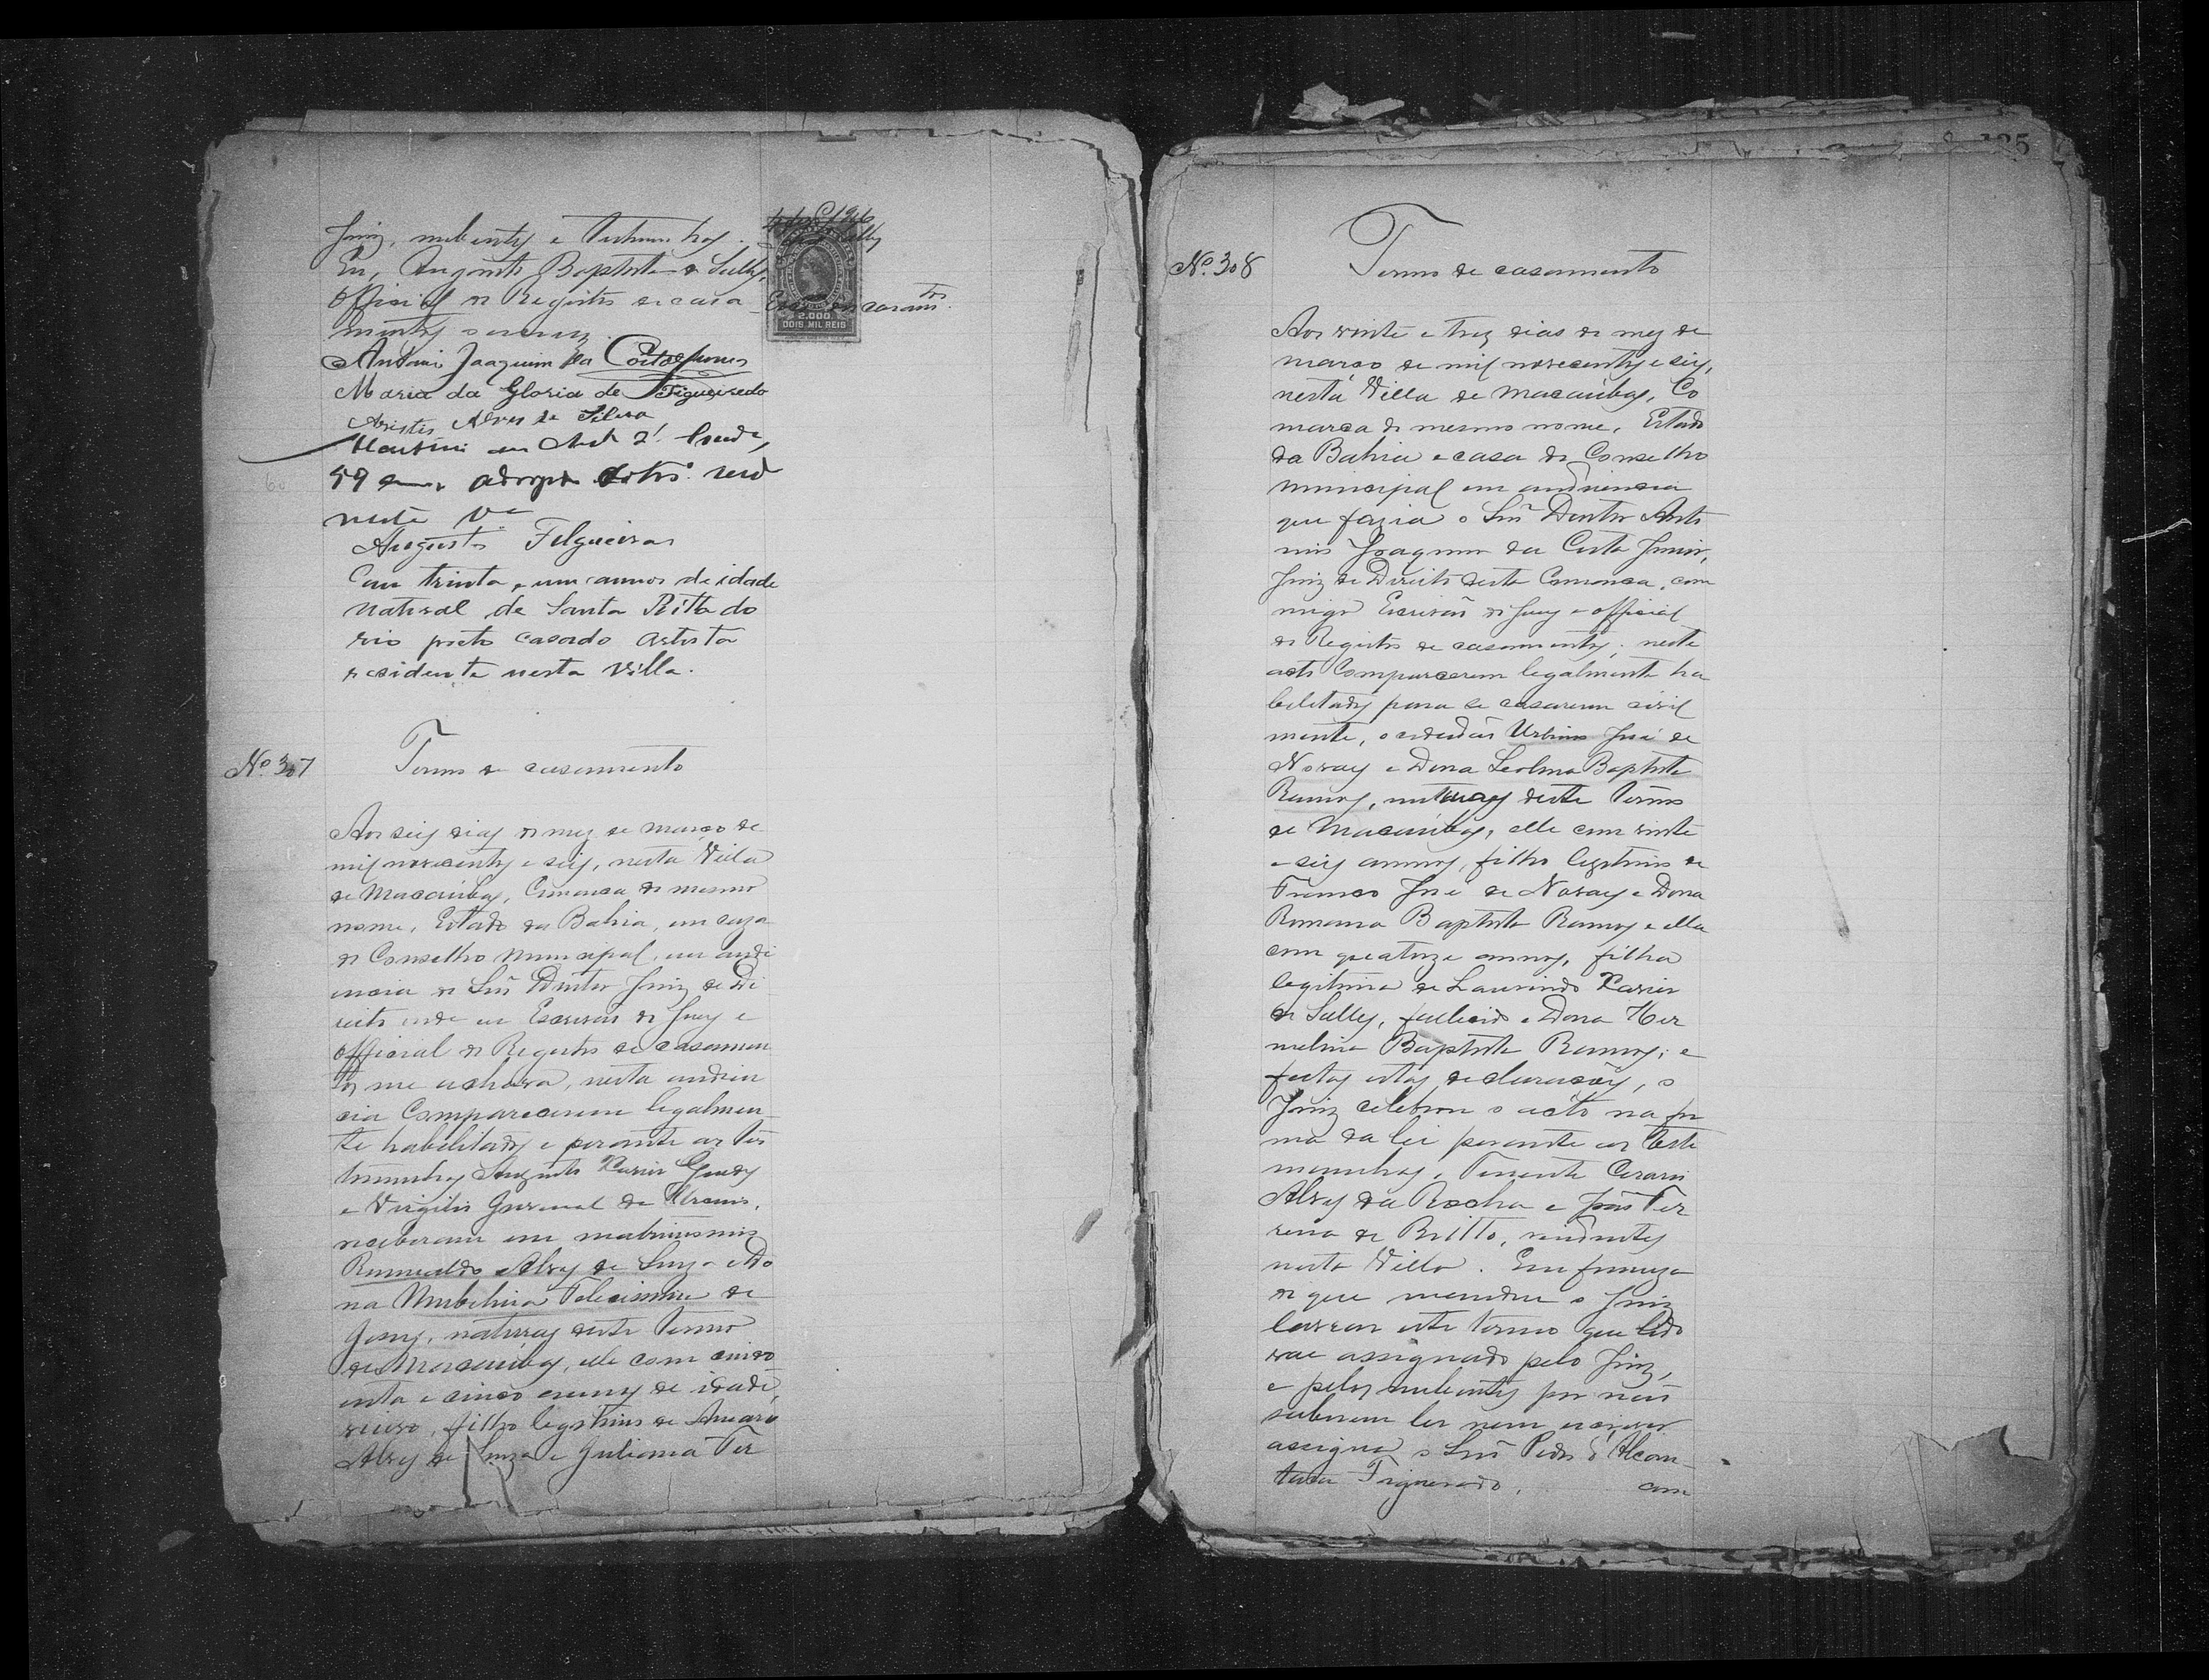 Juiz, nubentes e testemunhas.
Eu, Augusto Baptista de Sully,
Official do Registro de casa
mentos o escrevy.
Antonio Joaquim da Costa Junior
Maria da Gloria de Figueiredo
Aristes Alves da Silva
59
neste
Augusto Felgueiras
Com trinta e um annos de idade
natural de Santa Ritta do
rio preto casado artista
residente nesta Villa.
2.000
DOIS MIL REIS
Nº 307
Termo de casamento
Aos seis dias do mez de março de
mil novecentos e seis, nesta Villa
de Macaúbas, Comarca do mesmo
nome, Estado da Bahia, em caza
do Conselho Municipal, em audi
encia do Snr Doutor Juiz de Di
reito onde eu Escrivão do Jury e
Official do Registro de casamen
tos me achava, nesta audien
cia Compareceram legalmen
te habilitados e perante as tes
temunhas Augusto Xavier Guedes
e Virgilio Juvenal de
receberam em matrimonio
Romualdo Alves de Souza e Do
na Umbelina Felicissima de
Jesus, naturaes deste termo
de Macaúbas, elle com cinco
enta e cinco annos de idade,
viuvo, filho legitimo de Amaro
Alves de Souza e Juliana Fer
125
Nº 308
Termo de casamento
Aos vinte e trez dias do mez de
março de mil novecentos e seis,
nesta Villa de Macaúbas, Co
marca do mesmo nome, Estado
da Bahia e casa do Conselho
Municipal em audiencia
que fazia o Snr Doutor Anto
nio Joaquim da Costa Junior,
Juiz de Direito desta Comarca, com
migo Escrivão do Jury e official
do Registro de casamentos; neste
acto Compareceram legalmente ha
bilitados para se casarem civil
mente, o cidadão Urbino José de
Novaes e Dona Leolina Baptista
Ramos, naturaes deste termo
de Macaúbas, elle com vinte
e seis annos, filho legitimo de
Franco José de Novaes e Dona
Romana Baptista Ramos e ella
com quatorze annos, filha
legitima de Laurindo Xavier
de Sully, fallecido e Dona Her
melina Baptista Ramos; e
feitas estas declarações, o
Juiz celebrou o acto na for
ma da lei perante as teste
munhas, Tenente Cesario
Alves da Rocha e João Fer
reira de Britto, residentes
nesta Villa. Em firmeza
do que mandou o Juiz
lavrar este termo que lido
vae assignado pelo Juiz,
e pelos nubentes por não
saberem ler nem escrever
assigna o Snr Pedro d'Alcan
tara Figueredo. com